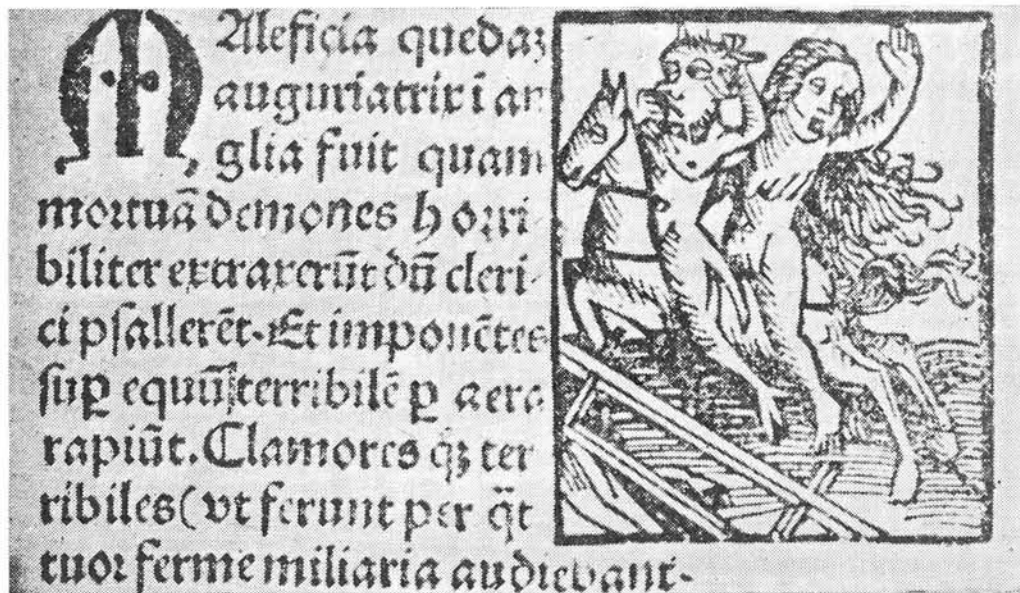 Maleficia quedaʒ
auguriatrix ī an
glia fuit quam
mortuā demones horri
biliter extraxerūt dū cleri
ci psallerēt. Et imponētes
suꝑ equū terribilē ꝑ aera
rapiūt. Clamores qʒ ter
ribiles (vt ferunt per q̄t
tuor ferme miliaria audiebant.